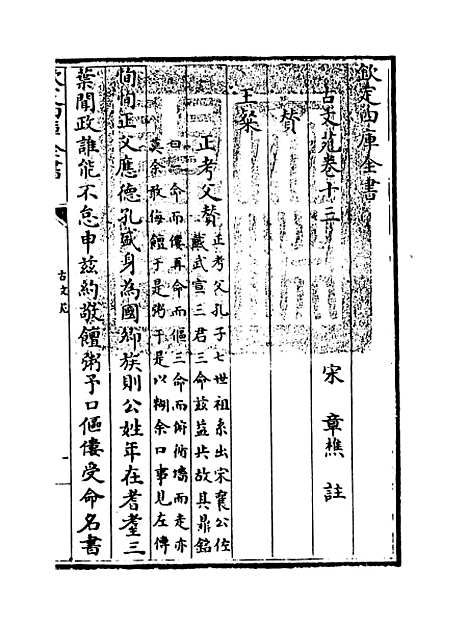 欽定四庫全書
古文苑卷十三
宋 章樵 註
贊
王粲
正考父贊
正考父孔子七世祖系出宋襄公佐
戴武宣三君三命兹益共故其鼎銘
曰一命而僂再命而傴三命而俯循墻而走亦
莫余敢侮饘于是粥于是以糊余口事見左傳
恂恂正父應德孔盛身為國卿族則公姓年在耆耋三
葉聞政誰能不怠申兹約敬饘粥予口傴僂受命名書
欽定四庫全書
古文苑
一